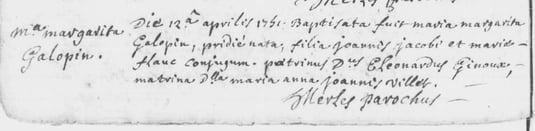 Mª margarita
Galopin.
Die 12ª aprilis 1751. Baptisata fuit maria margarita
Galopin, pridie nata, filia joannis jacobi et mariæ
flauc conjugum. patrinus Dnus Eleonardus Ginoux,
matrina Dlla maria anna joannis villet.
Merles parochus